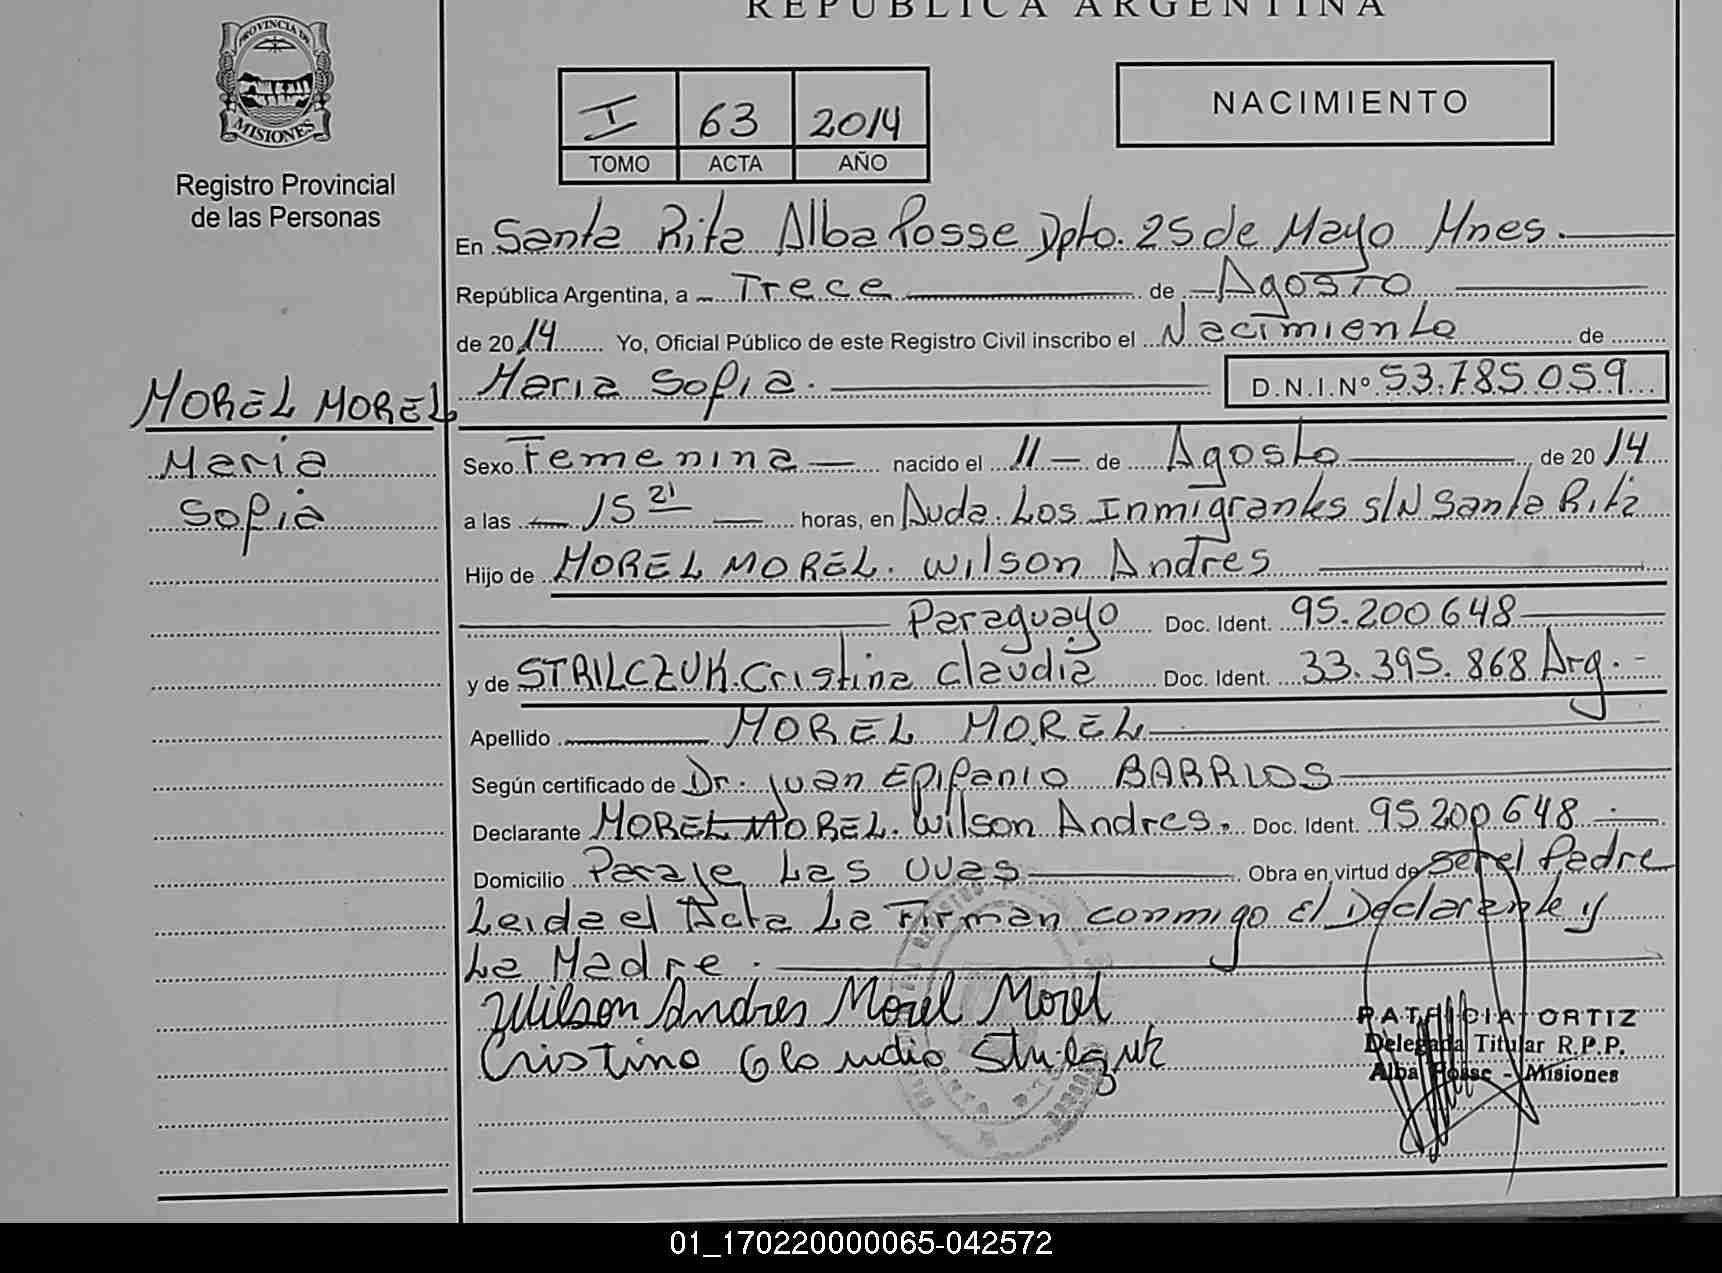 REPUBLICA ARGENTINA
PROVINCIA DE
MISIONES
Registro Provincial
de las Personas
I 63 2014
TOMO ACTA AÑO
NACIMIENTO
En Santa Rita Alba Posse Dpto. 25 de Mayo Mnes.
República Argentina, a Trece de Agosto
de 2014 Yo, Oficial Público de este Registro Civil inscribo el Nacimiento de
Maria Sofia. D.N.I.Nº 53.785.059
MOREL MOREL
Maria
Sofia
Sexo Femenina nacido el 11 de Agosto de 2014
a las 15 21 horas, en Avda. Los Inmigrantes s/N Santa Rita
Hijo de MOREL MOREL. Wilson Andres
Paraguayo Doc. Ident. 95.200.648
y de STRILCZUK. Cristina Claudia Doc. Ident. 33.395.868 Arg.-
Apellido MOREL MOREL
Según certificado de Dr. Juan Epifanio BARRIOS
Declarante MOREL MOREL. Wilson Andres. Doc. Ident. 95.200.648
Domicilio Paraje Las Uvas Obra en virtud de ser el Padre
Leida el Acta La Firman conmigo El Declarante y
La Madre.
Wilson Andres Morel Morel
Cristina Claudia
PATRICIA ORTIZ
Delegada Titular R.P.P.
Alba Posse - Misiones
01_170220000065-042572